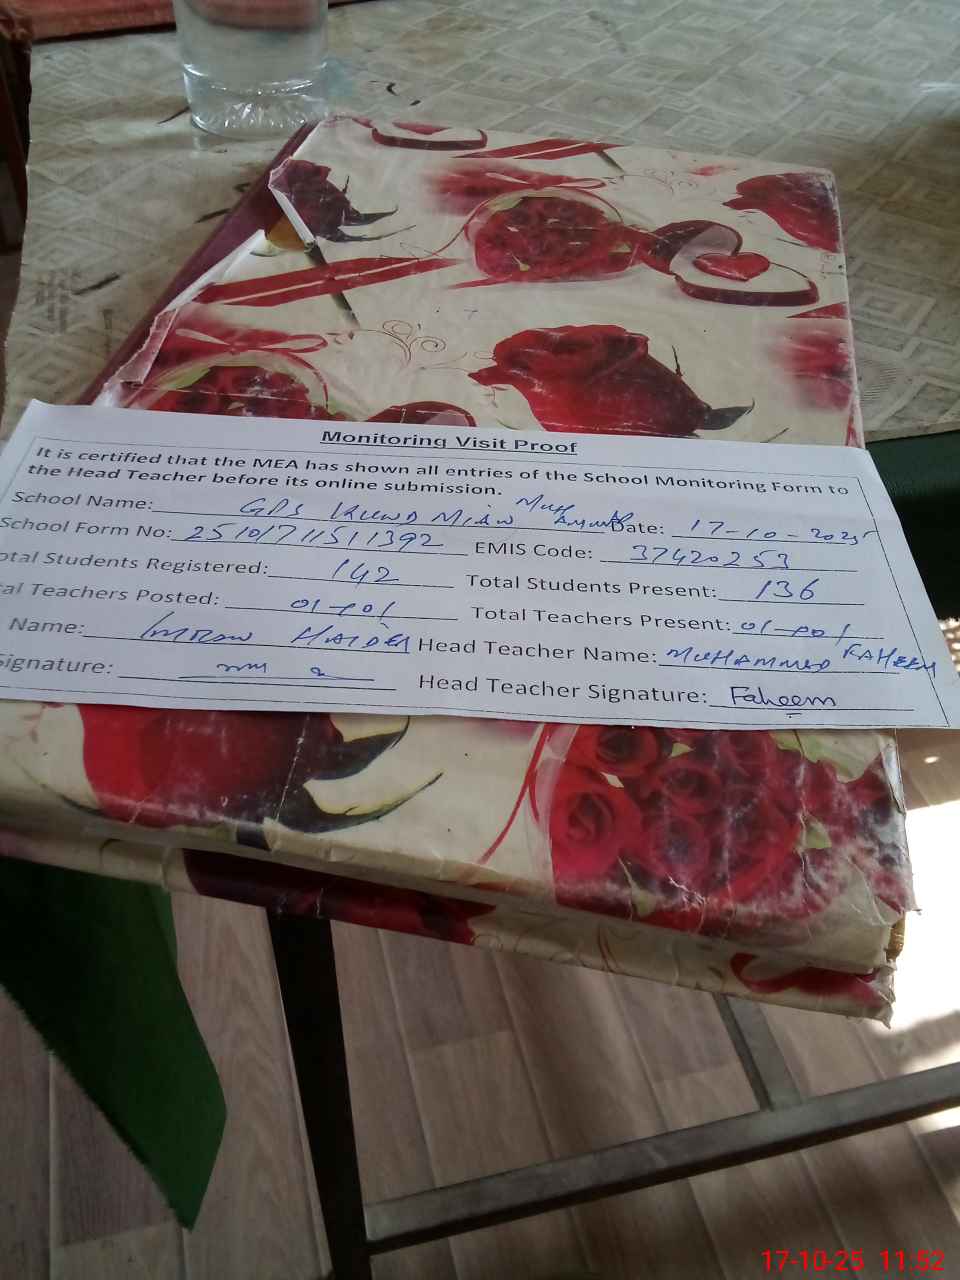 Monitoring Visit Proof
It is certified that the MEA has shown all entries of the School Monitoring Form to
the Head Teacher before its online submission.
School Name: GPS Mian Date: 17-10-2025
School Form No: 2510171151 1392 EMIS Code: 37420253
otal Students Registered: 142 Total Students Present: 136
al Teachers Posted: 01-01 Total Teachers Present: 01-01
Name: Imran HAIDER Head Teacher Name: MUHAMMED FAHEEM
Signature: Head Teacher Signature: Faheem
17-10-25 11:52